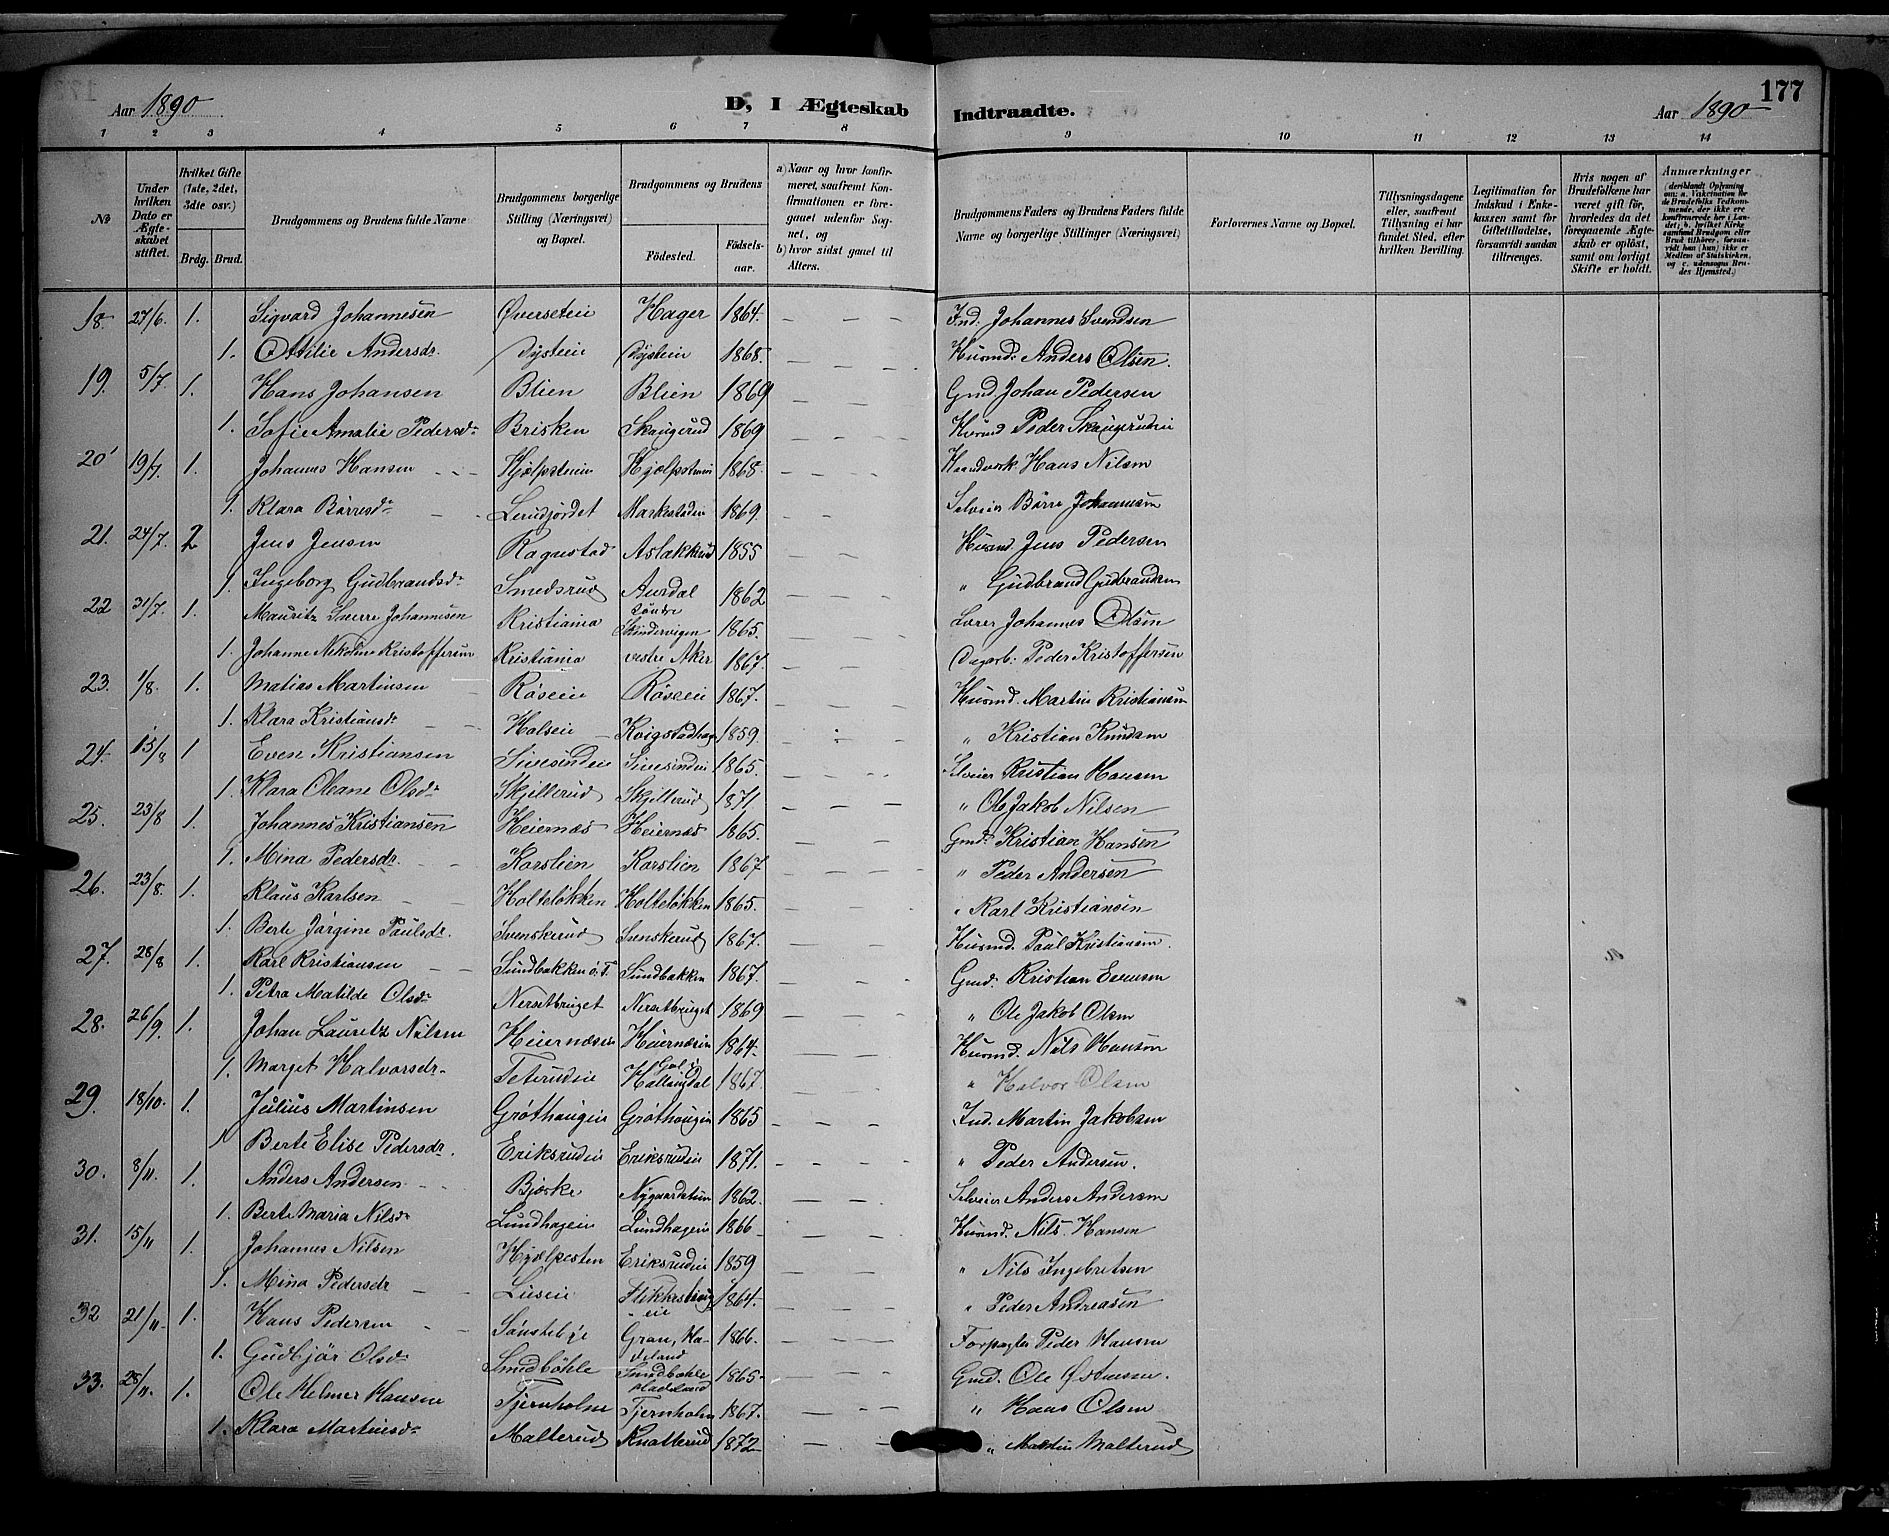 177
Aar 1890 D, I Ægteskab Indtraadte. Aar 1890
1 2 3 4 5 6 7 8 9 10 11 12 13 14
No
Under hvilken Dato er Ægteskabet stiftet.
Hvilket Gifte (1ste, 2det, 3die osv.)
Brdg. Brud.
Brudgommens og Brudens fulde Navne
Brudgommens borgerlige Stilling (Næringsvei) og Bopæl.
Brudgommens og Brudens
Fødested. Fødselsaar.
a) Naar og hvor konfirmeret, saafremt Konfirmationen er foregaaet udenfor Sognet, og
b) hvor sidst gaaet til Alters.
Brudgommens Faders og Brudens Faders fulde Navne og borgerlige Stillinger (Næringsvei)
Forlovernes Navne og Bopæl.
Tillysningsdagene eller, saafremt Tillysning ei har fundet Sted, efter hvilken Bevilling.
Legitimation for Indskud i Enkekassen samt for Giftetilladelse, forsaavidt saadan tiltrænges.
Hvis nogen af Brudefolkene har været gift før, hvorledes da det foregaaende Ægteskab er opløst, samt om lovligt Skifte er holdt.
Anmærkninger (deriblandt Oplysning om: a. Vakcination for de Brudefolks Vedkommende, der ikke ere konfirmerede her i Landet; b. hvilket Kirkesamfund Brudgom eller Brud tilhører, forsaavidt han (hun) ikke er Medlem af Statskirken, og c. udensogns Brudes Hjemsted.)
18. 27/6. 1. Sigvard Johannesen Øverseteie Hager 1864. Ind. Johannes Svendsen
1. Ottilie Andersdr. Dysteie Dystein 1868. Husmd. Anders Olsen.
19. 5/7. 1. Hans Johansen Blien Blien 1869 Gmd. Johan Pedersen
1. Sofie Amalie Pedersdr Brisken Skaugerud 1869 Husmd Peder Skaugerudeie
20 19/7. 1. Johannes Hansen Hjælpsteien Hjælpsteien 1868. Haandverk. Hans Nilsen
1. Klara Børresdr Lerudjordet Markestaden 1869. Selveier Børre Johannesen
21. 24/7. 2 Jens Jensen Ragnstad Aslakkrud 1855 Husmd. Jens Pedersen
1. Ingeborg Gudbrandsdr Smedsrud Aurdal søndre 1862 " Gudbrand Gudbrandsen
22 31/7. 1. Mauritz Sverre Johannesen Kristiania 1865. Lærer Johannes Olsen
1. Johanne Nikoline Kristoffersen Kristiania vestre Aker 1867. Dagarb. Peder Kristoffersen
23. 1/8. 1. Matias Martinsen Røseie Røseeie 1867. Husmd. Martin Kristiansen
1. Klara Kristiansdr Holseie 1859. " Kristian Knudsen
24. 15/8 1 Even Kristiansen Sivesindeie Sivesindeie 1865. Selveier Kristian Hansen
1. Klara Oleane Olsdr Skjellerud Skjellerud 1871. " Ole Jakob Nilsen
25. 23/8 1. Johannes Kristiansen Heiernæs Heiernæs 1865. Gmd. Kristian Hansen
1. Mina Pedersdr. Korslien Korslien 1867 " Peder Andersen
26. 23/8. 1. Klaus Karlsen Holteløkken Holteløkken 1865. " Karl Kristiansen
1. Berte Jørgine Paulsdr. Svenskerud Svenskerud 1867. Husmd. Paul Kristiansen.
27. 28/8 1. Karl Kristiansen Sundbakken ø.T. Sundbakken 1867. Gmd. Kristian Evensen
1. Petra Matilde Olsdr Nersetbruget Nersetbruget 1869 " Ole Jakob Olsen
28. 26/9 1. Johan Lauretz Nilsen Heiernæseie Heiernæseie 1864. Husmd. Nils Hansen
1. Marget Halvorsdr. Teterudeie Gol i Hallingdal 1867. " Halvor Olsen
29. 18/10. 1. Julius Martinsen Grøthaugen Grøthaugen 1865 Ind. Martin Jakobsen
1. Berte Elise Pedersdr. Eriksrudeie Eriksrudeie 1871. " Peder Andersen.
30. 8/11. 1. Anders Andersen Bjørke Nygaardstuen 1862. Selveier Anders Andersen
1. Berte Maria Nilsdr Lundhageie Lundhageie 1866 Husmd. Nils Hansen
31. 15/11 1. Johannes Nilsen Hjælpesten Eriksrudeie 1859 " Nils Ingebretsen
1. Mina Pedersdr Lieseie 1864. " Peder Andreasen
32 21/11. 1. Hans Pedersen Sønstebye Gran, Hadeland 1866. Forpagter Peder Hansen
1. Gudbjør Olsdr Smedbøhle Hadeland 1865. Gmd. Ole Østensen.
33. 28/11. 1. Ole Helmer Hansen Tjernholm Tjernholm 1867. " Hans Olsen
1. Klara Martinsdr Malterud Knatterud 1872 " Martin Malterud